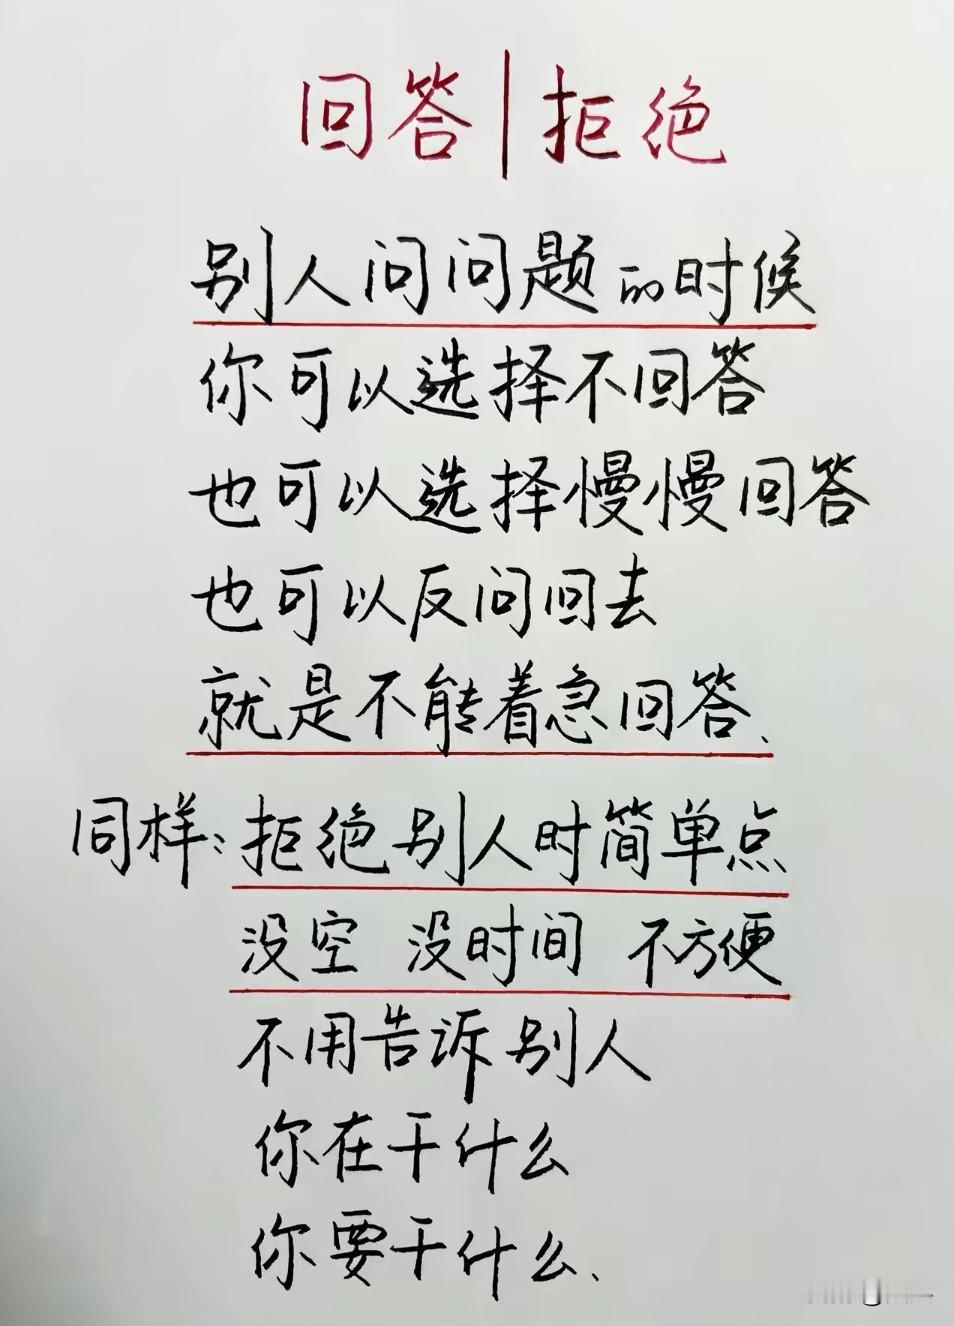 回答|拒绝
别人问问题的时候
你可以选择不回答
也可以选择慢慢回答
也可以反问回去
就是不能着急回答、
同样:拒绝别人时简单点
没空 没时间 不方便
不用告诉别人
你在干什么
你要干什么、